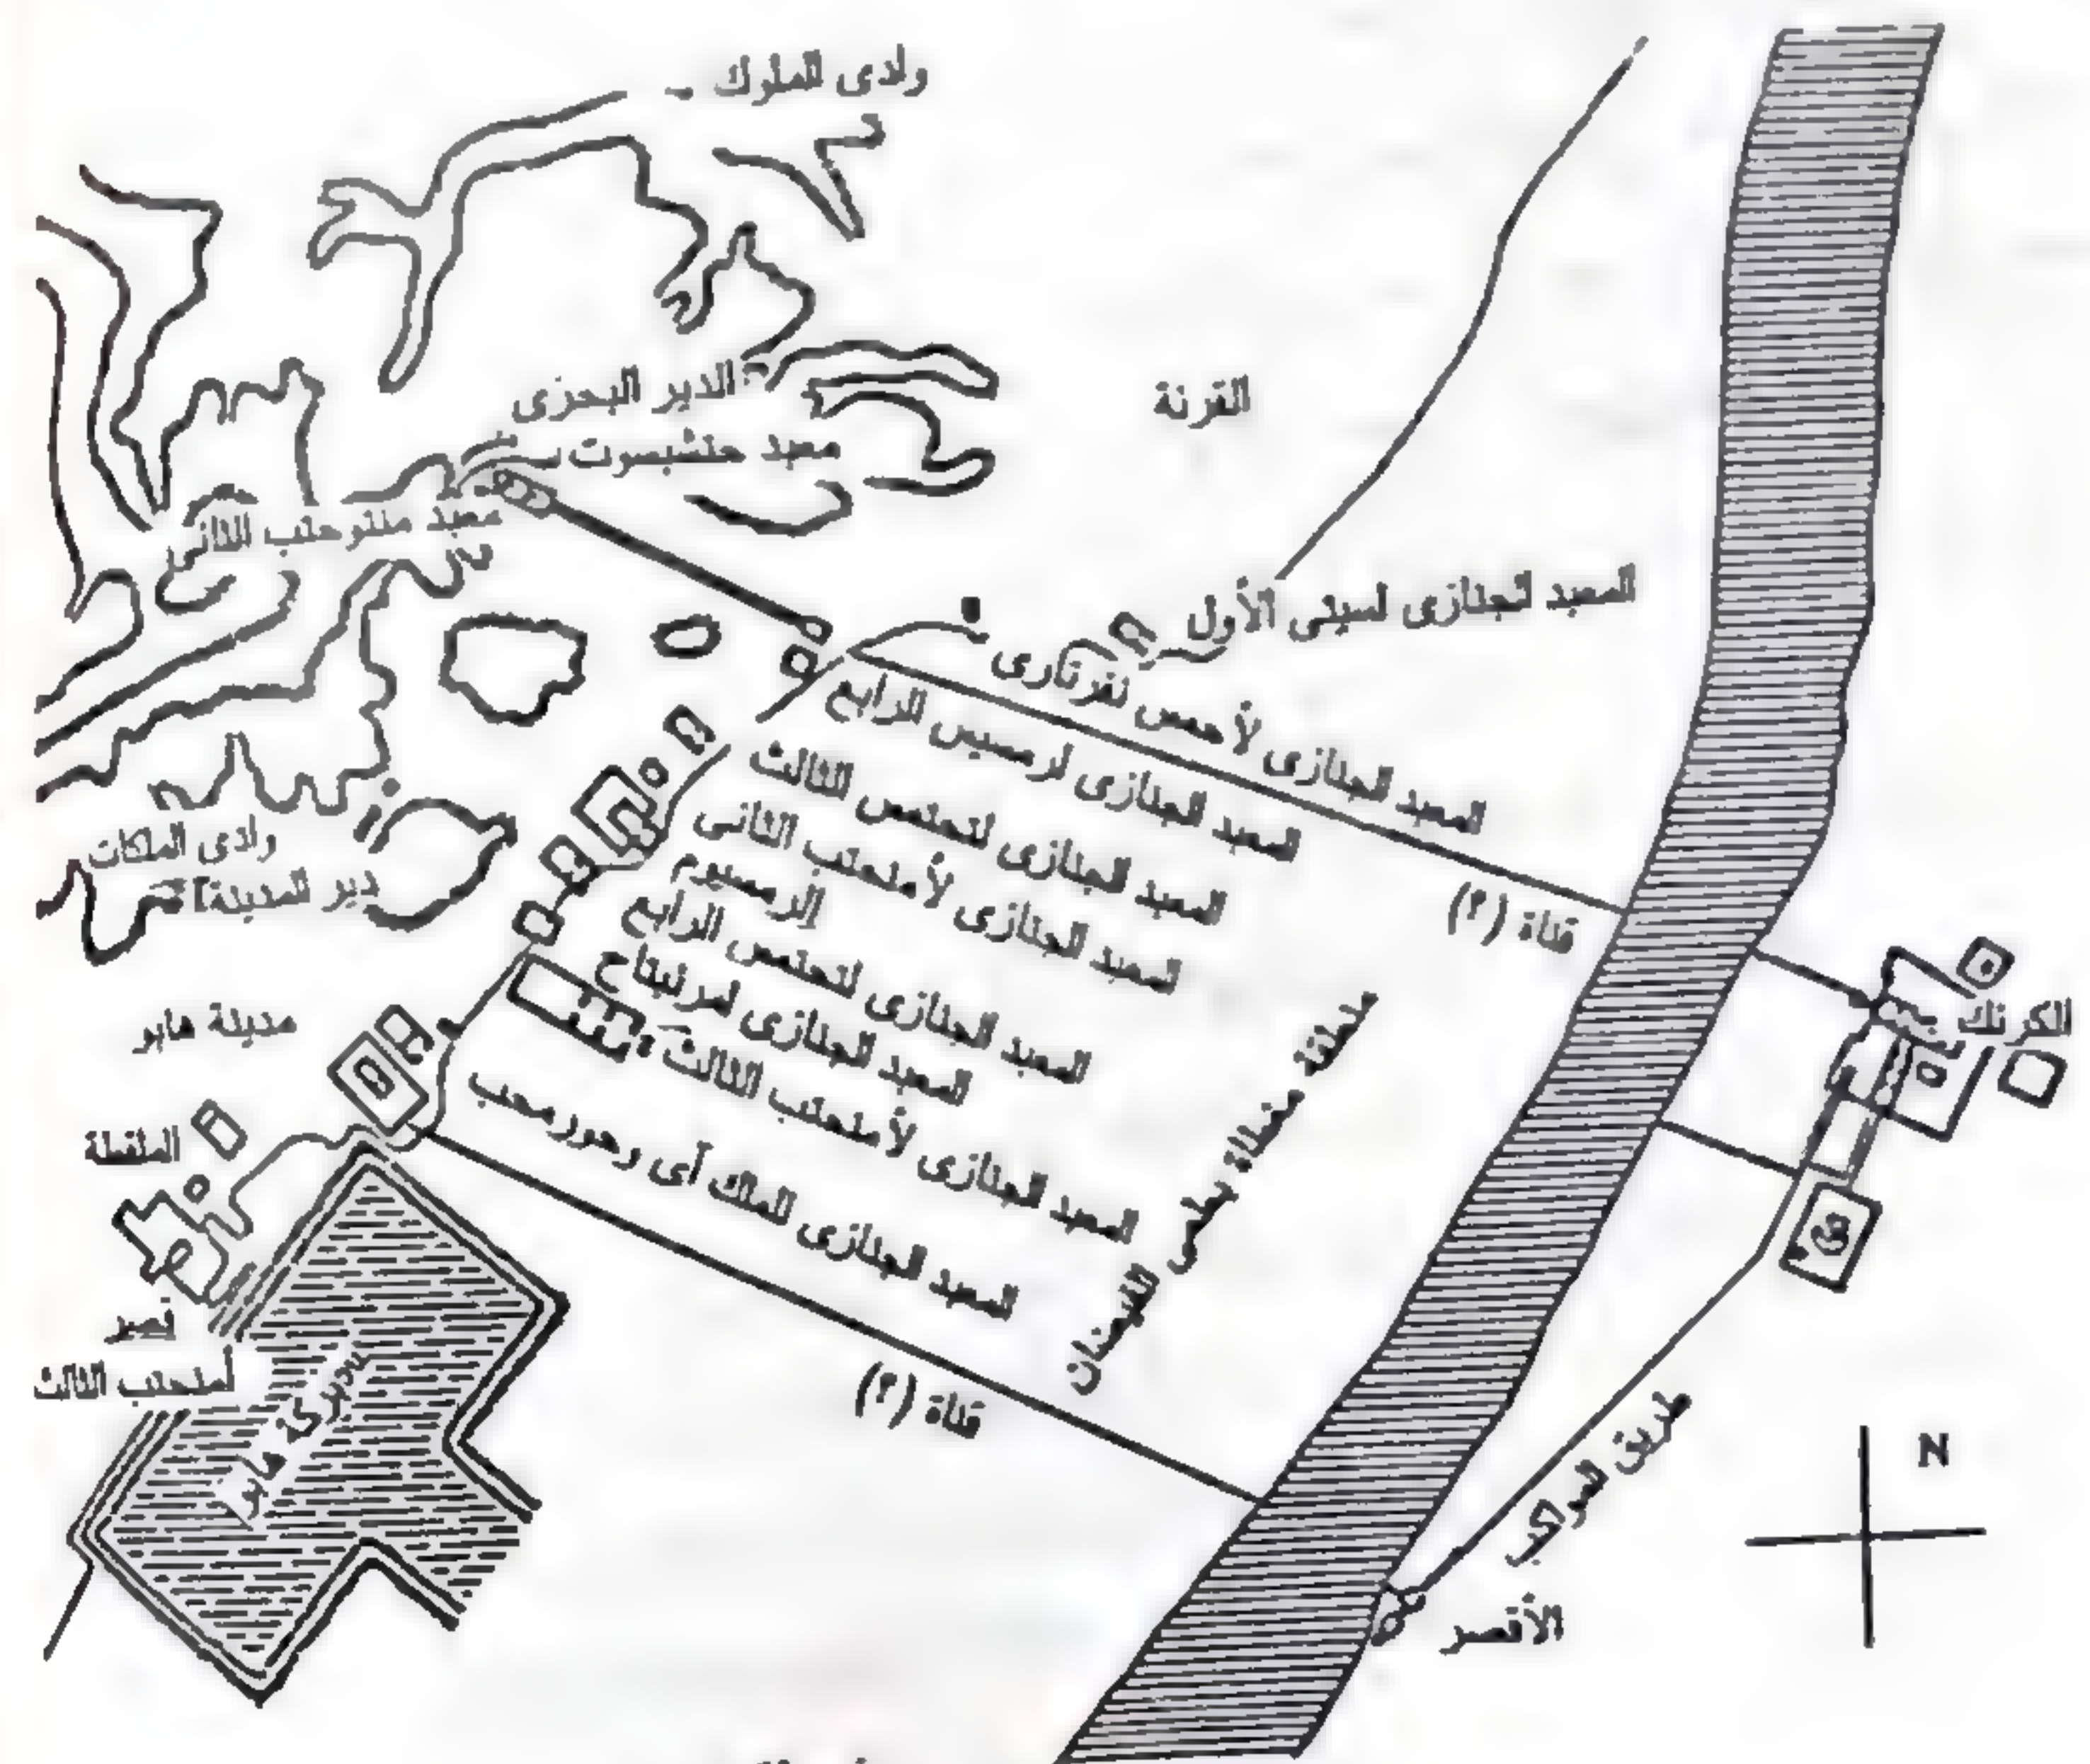 وادى الملوك
الدير البحرى
معبد حتشبسوت
القرنة
معبد منتوحتب الثانى
المعبد الجنازى لسيتى الأول
المعبد الجنازى لأحمس نفرتارى
المعبد الجنازى لرمسيس الرابع
المعبد الجنازى لتحتمس الثالث
المعبد الجنازى لأمنحتب الثانى
الرمسيوم
المعبد الجنازى لتحتمس الرابع
المعبد الجنازى لمرنبتاح
المعبد الجنازى لأمنحتب الثالث
المعبد الجنازى للملك آى وحورمحب
وادى الملكات
دير المدينة
مدينة هابو
الملقطة
قصر
أمنحتب الثالث
بركة هابو
قناة (؟)
قناة (؟)
منطقة مغطاة بطمى الفيضان
الكرنك
طريق المواكب
الأقصر
N